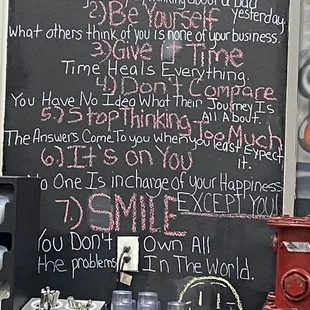 thinking about a bad
yesterday.
2) Be Yourself
what others think of you is none of your business.
3) Give it Time
Time Heals Everything.
4) Don't Compare
You Have No Idea What Their Journey Is
All About.
5.) Stop Thinking Too Much
The Answers Come To you when you least Expect
it.
6) It's on You
No One Is in charge of your Happiness
EXCEPT YOU!
7.) SMILE
You Don't Own All
the problems In The World.